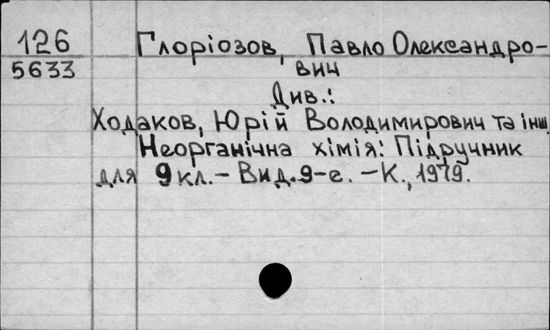 126
5633
Глоріозов, Павло Олександро-
вич
Див.:
Ходаков, Юрій Володимирович та інш
Неорганічна хімія: Підручник
для 9 кл. – Вид. 9-е. – К., 1979.